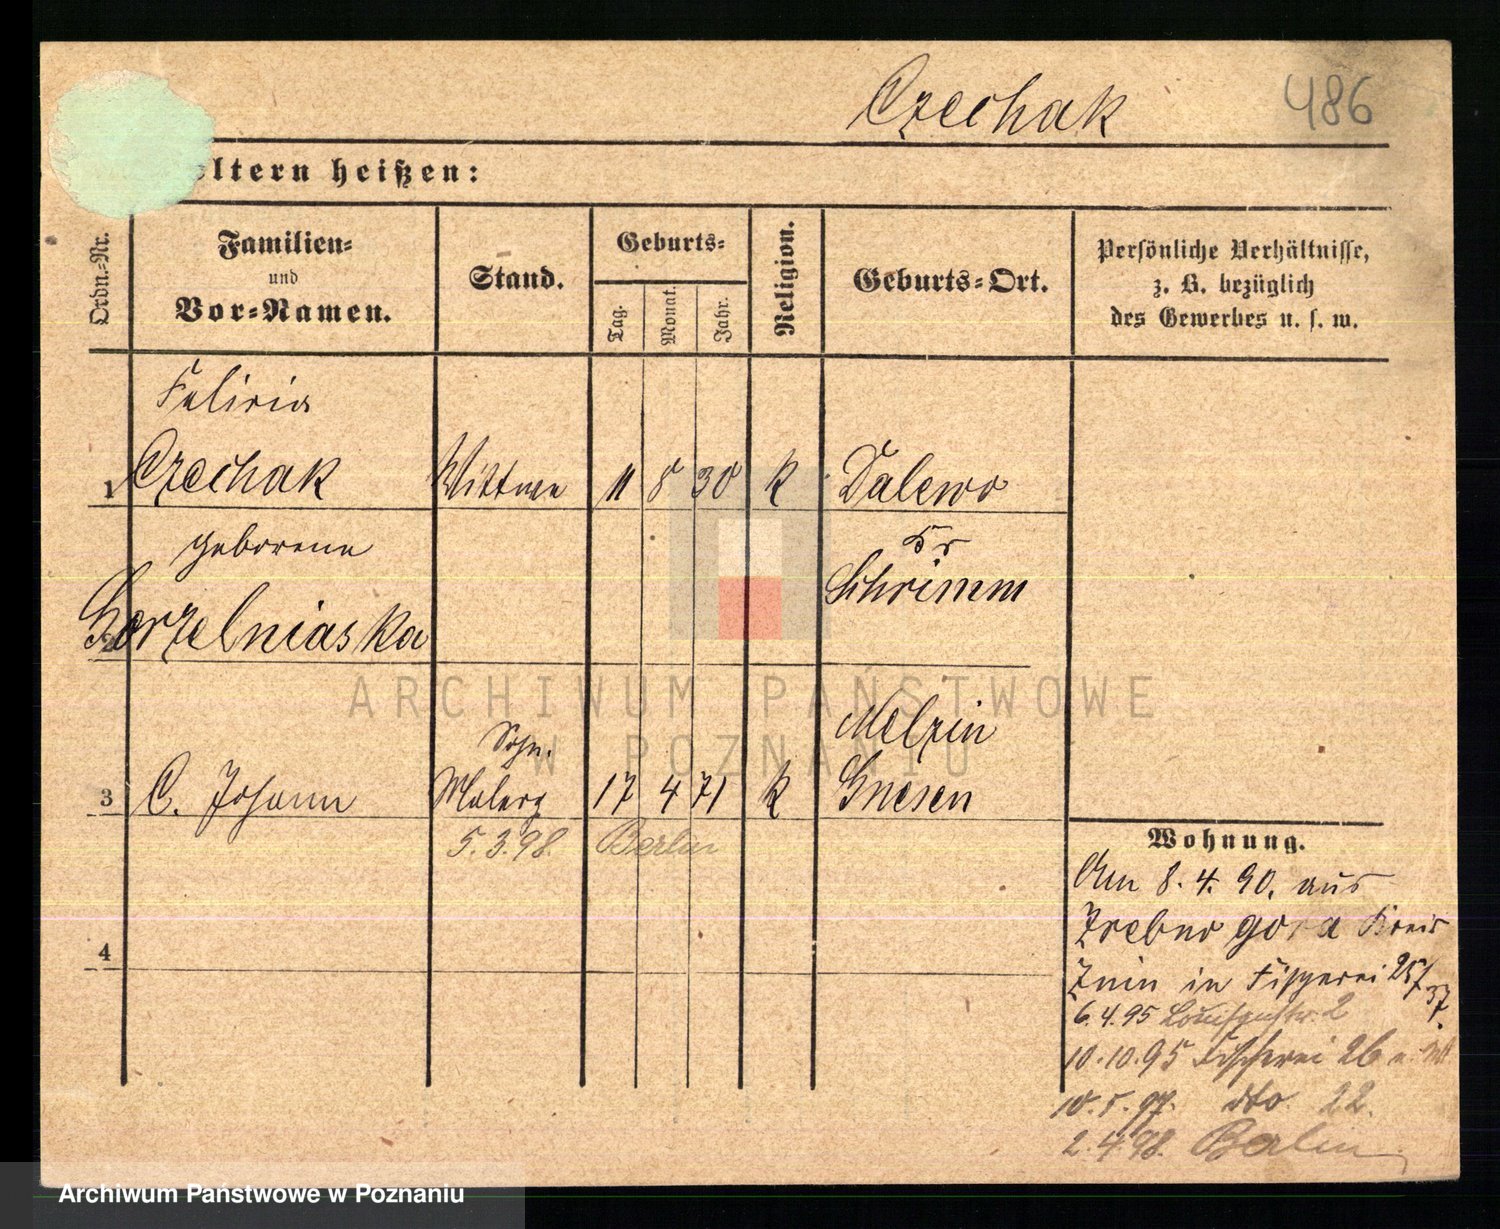 Czechak 486
eltern heißen:
Ordn.-Nr.
Familien-
und
Vor-Namen.
Stand.
Geburts-
Tag.
Monat.
Jahr.
Religion.
Geburts-Ort.
Persönliche Verhältnisse,
z. B. bezüglich
des Gewerbes u. s. w.
Felicia
1 Czechak Wittwe 11 8 30 k Dalewo
geborene Kr
Schrimm
2 Gorzelniaska
Sohn. Melpin
3 C. Johann Maler 17 4 71 k Gnesen
5.3.98. Berlin
4
Wohnung.
Am 8.4.90. aus
gora Kreis
Znin in Fischerei 25/
37.
6.4.95 Louisenstr. 2
10.10.95 Fischerei 26
10.5.97. dto. 22.
2.4.98. Berlin
ARCHIWUM PAŃSTWOWE
W POZNANIU
Archiwum Państwowe w Poznaniu